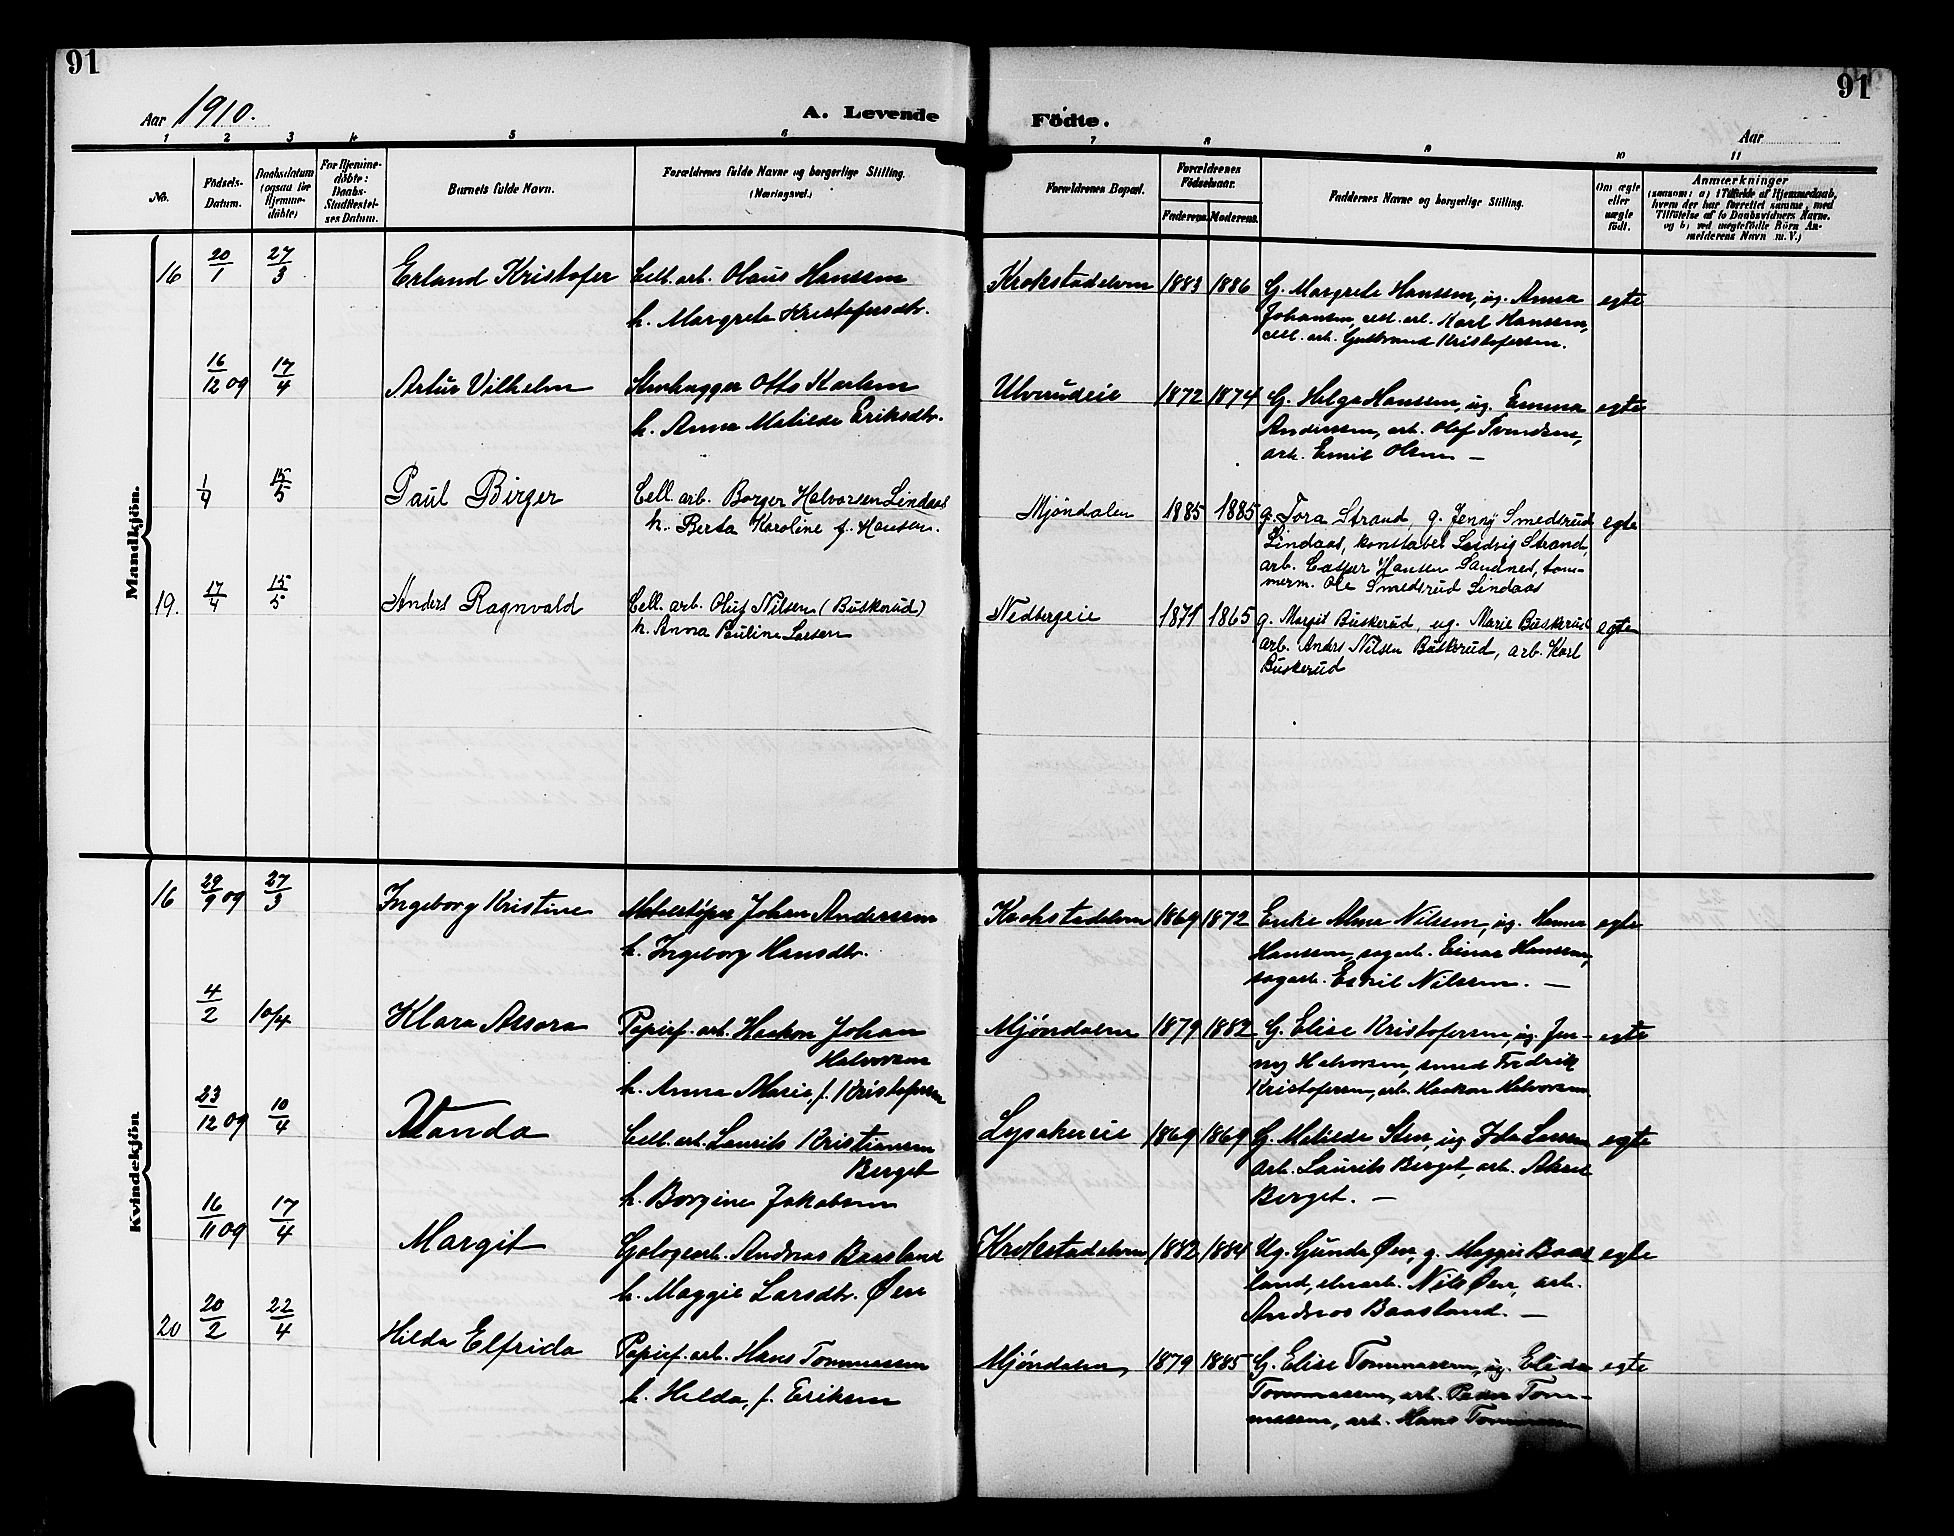 91
91
Aar 1910.
A. Levende
Födte.
Aar
1 2 3 4 5 6 7 8 9 10 11
No.
Födsels-
Datum.
Daabsdatum
(ogsaa for
Hjemme-
döbte)
For Hjemme-
döbte:
Daabs-
Stadfæstel-
ses Datum.
Barnets fulde Navn.
Forældrenes fulde Navne og borgerlige Stilling.
(Næringsvei.)
Forældrenes Bopæl.
Forældrenes
Födselsaar.
Faderens. Moderens.
Faddernes Navne og borgerlige Stilling.
Om ægte
eller
uægte
födt.
Anmærkninger
(saasom: a) i Tilfælde af Hjemmedaab,
hvem der har forrettet samme, med
Tilföielse af to Daabsvidners Navne.
og b) ved uægtefödte Börn An-
melderens Navn m. V.)
Mandkjön.
16 20/1 27/3 Erland Kristofer Cell. arb. Olaus Hanssen
h. Margrete Kristofersdtr.
Krokstadelven 1883 1886 G. Margrete Hanssen, ug. Anna
Johansen, cell. arb. Karl Hanssen,
cell. arb. Gulbrand Kristofersen.
egte
16/12 09 17/4 Artur Vilhelm Stenhugger Otto Karlsen
h. Anna Matilde Eriksdtr.
Ulverudeie 1872 1874 G. Helga Hanssen, ug. Emma
Anderssen, arb. Olaf Svendsen,
arb. Emil Olsen —
egte
1/4 15/5 Paul Birger Cell. arb. Borger Halvorsen Lindaas
h. Berta Karoline f. Hansen.
Mjöndalen 1885 1885 g. Tora Strand, g. Jenny Smedsrud
Lindaas, konstabel Ludvig Strand,
arb. Casper Hansen Sandnes, töm-
merm. Ole Smedsrud Lindaas
egte
19. 17/4 15/5 Anders Ragnvald Cell. arb. Oluf Nilsen (Buskerud)
h. Anna Pauline Larsen
Nedbergeie 1871 1865 g. Margit Buskerud, ug. Marie Buskerud
arb. Anders Nilsen Buskerud, arb. Karl
Buskerud
egte
Kvindekjön
16 29/9 09 27/3 Ingeborg Kristine Metalstöper Johan Anderssen
h. Ingeborg Hansdtr.
Krokstadelven 1869 1872 Enke Alma Nilsen, ug. Hanna
Hanssen, sagarb. Einar Hanssen,
sagarb. Eskil Nilssen. —
egte
4/2 10/4 Klara Assora Papirf. arb. Haakon Johan
Halvorsen
h. Anna Marie, f. Kristofersen
Mjöndalen 1879 1882 G. Elise Kristofersen, ug. Jen-
ny Halvorsen, smed Fredrik
Kristofersen, arb. Haakon Halvorsen
egte
23/12 09 10/4 Vanda Cell. arb. Laurits Kristiansen
Berget
h. Borgine Jakobsen
Lysakereie 1869 1869 G. Matilde Sten, ug. Ida Larsen
arb. Laurits Berget, arb. Aksel
Berget. —
egte
16/11 09 17/4 Margit Gologearb. Andreas Baasland
h. Maggie Larsdtr. Øen
Krokstadelven 1882 1884 Ug. Gunda Øen, g. Maggie Baas
land, elvearb. Nils Øen, arb.
Andreas Baasland. —
egte
20 20/2 22/4 Hilda Elfrida Papirf. arb. Hans Tommassen
h. Hilda, f. Eriksen
Mjöndalen, 1879 1885 G. Elise Tommassen, ug. Elida
Tommassen, arb. Peder Tom-
massen, arb. Hans Tommassen
egte